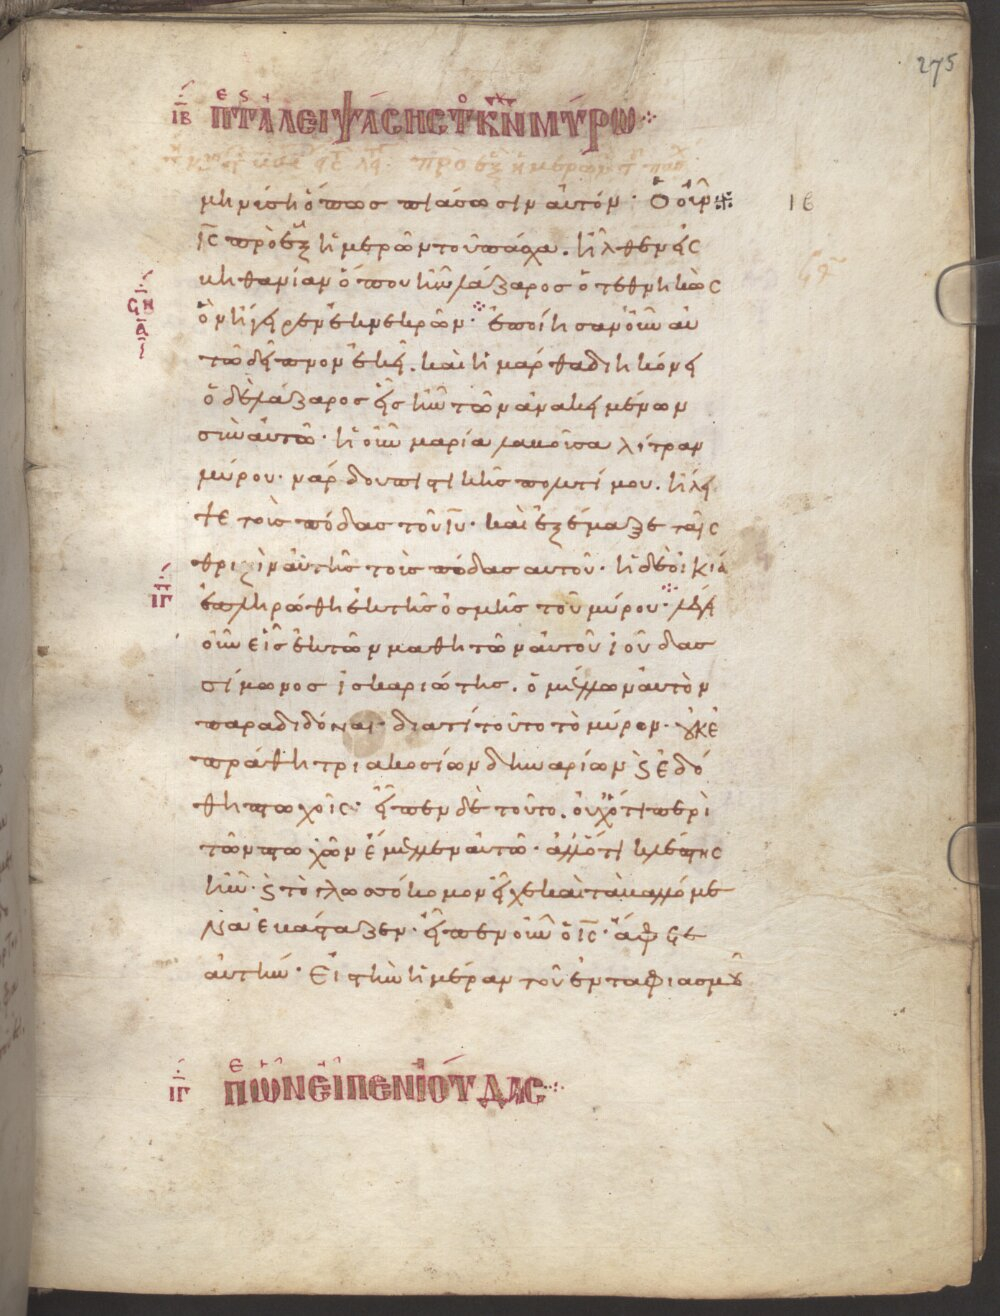 275
ΙΒ ΠΤ ΑΛΕΙΨΆΣΗΣ Τ ΚΝ ΜΎΡΩ
μηνύσῃ ὅπως πιάσωσιν αὐτόν· Ὁ οὖν
ις πρὸ ἓξ ἡμερῶν τοῦ πάσχα. ἦλθεν εἰς
βηθανίαν ὅπου ἦν λάζαρος ὁ τεθνηκὼς
ὃν ἤγειρεν ἐκ νεκρῶν· ἐποίησαν οὖν αυ
τῶ δεῖπνον ἐκεῖ. καὶ ἡ μάρθα διηκόνει
ὁ δὲ λάζαρος εἷς ἦν τῶν ἀνακειμένων
σὺν αὐτῶ· ἡ οὖν μαρία λαβοῦσα λίτραν
μύρου· νάρδου πιστικῆς πολυτίμου. ἤλει
ψε τοὺς πόδας τοῦ ιυ· καὶ ἐξέμαξε ταῖς
θριξὶν αὐτῆς τοὺς πόδας αὐτοῦ· ἡ δὲ οἰκία
ΙΓ ἐπληρώθη ἐκ τῆς ὀσμῆς τοῦ μύρου· λέγει
οὖν εἷς ἐκ τῶν μαθητῶν αὐτοῦ ἰούδας
σίμωνος ἰσκαριώτης. ὁ μέλλων αὐτὸν
παραδιδόναι· διατί τοῦτο τὸ μύρον· οὐκ ἐ
πράθη τριακοσίων δηναρίων ϗ ἐδό
θη πτωχοῖς· εἶπεν δὲ τοῦτο. οὐχ ὅτι περὶ
τῶν πτωχῶν ἔμελλεν αὐτῶ· ἀλλ ὅτι κλέπτης
ἦν· ϗ τὸ γλωσσόκομον εἶχε καὶ τὰ βαλλόμε
να ἐβάσταζεν· εἶπεν οὖν ὁ ις· ἄφες
αὐτήν· Εἰς τὴν ἡμέραν τοῦ ἐνταφιασμοῦ
ΙΓ ΠΩΝ ΕἶΠΕΝ ΙΟΎΔΑΣ